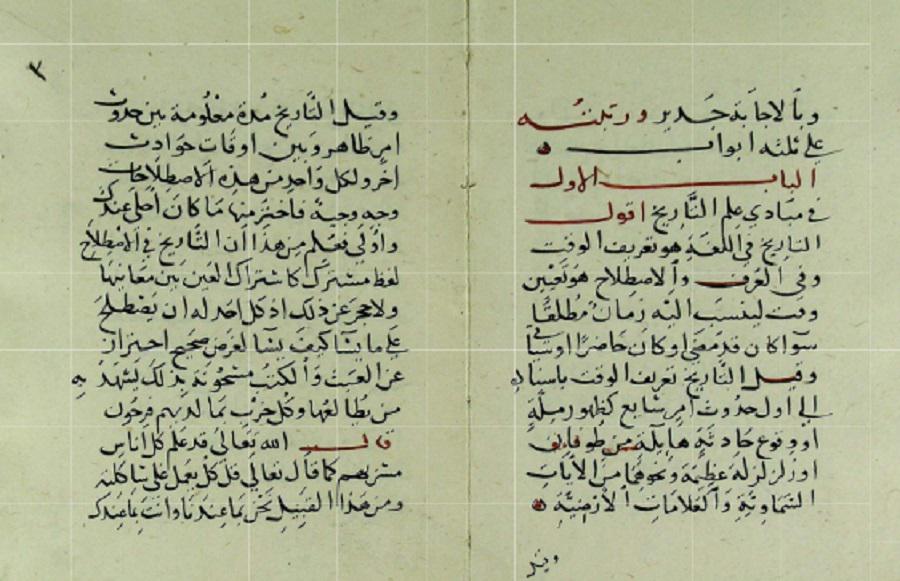 وبالاجابة جدير ورتبته
على ثلثه ابواب
الباب الاول
في مبادي علم التاريخ اقول
التاريخ في اللغة هو تعريف الوقت
وفي العرف والاصطلاح هو تعيين
وقت لينسب اليه زمان مطلقا
سوآ كان قد مضى او كان حاضرا او سياتي
وقيل التاريخ تعريف الوقت باسناده
الى اول حدوث امر شايع كظهور ملة
او وقوع حادثة هايلة من طوفان
او زلزلة عظيمة ونحوهما من الآيات
السماوية والعلامات الارضية
وقيل
٣
وقيل التاريخ مدة معلومة بين حدوث
امر ظاهر وبين اوقات حوادث
اخر ولكل واحد من هذه الاصطلاحات
وجه وجيه فاختر منها ما كان احلى عندك
واولى فعلم من هذا ان التاريخ في الاصطلاح
لفظ مشترك كاشتراك العين بين معانيها
ولا حجر عن ذلك اذ كل احد له ان يصطلح
على ما يشا كيف يشا لغرض صحيح احتراز
عن العبث والكتب مشحونة بذلك يشهد به
من يطالعها وكل حزب بما لديهم فرحون
قال الله تعالى قد علم كل اناس
مشربهم كما قال تعالى قل كل يعمل على شاكلته
ومن هذا القبيل نحن بما عندنا وانت بما عندك